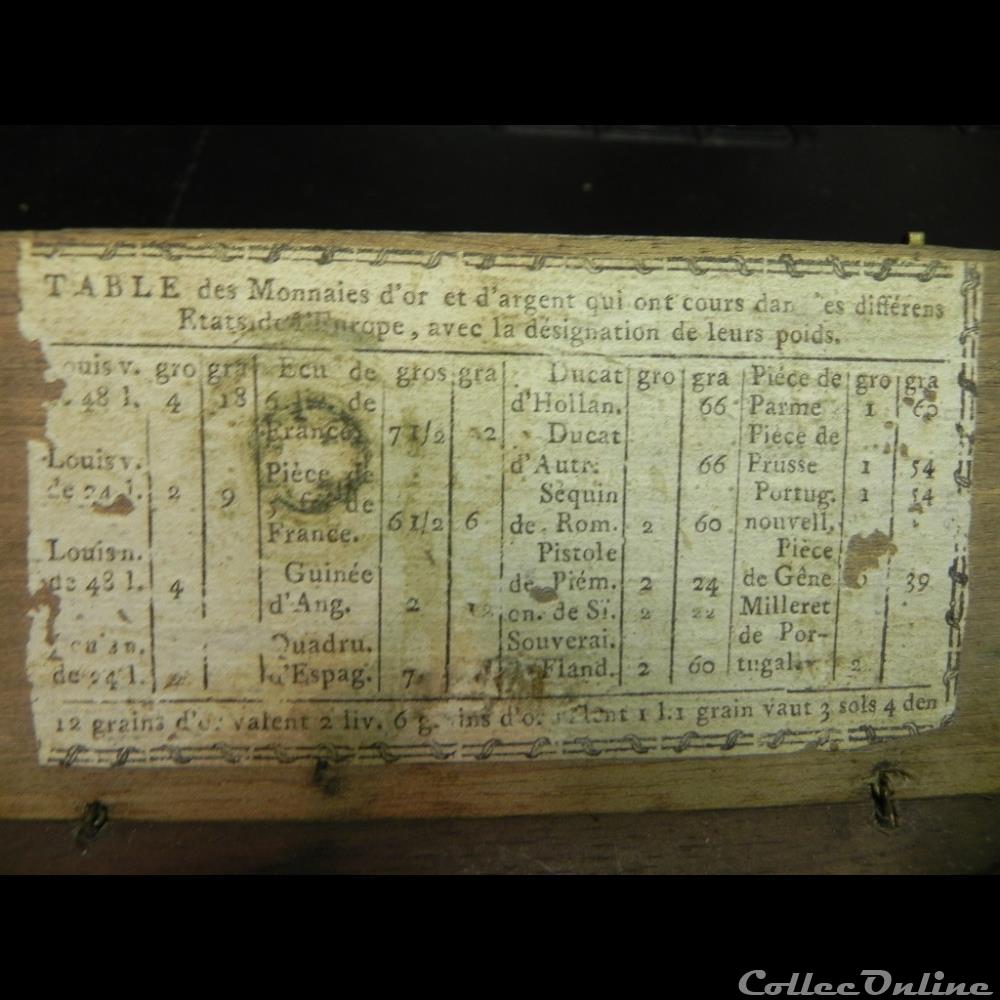 TABLE des Monnaies d'or et d'argent qui ont cours dan les différens
Etats de l'Europe, avec la désignation de leurs poids.
ouis v. gro gra
48 l. 4 18
Louis v.
de 24 l. 2 9
Louis n.
de 48 l. 4
de 24 l.
Ecu de gros gra
6 de
France 7 1/2 2
Pièce de
de
France. 6 1/2 6
Guinée
d'Ang. 2 12
Quadru.
d'Espag. 7
Ducat gro gra
d'Hollan. 66
Ducat
d'Autr. 66
Sequin
de Rom. 2 60
Pistole
de Piém. 2 24
on. de Si. 2 22
Souverai.
Fland. 2 60
Piéce de gro gra
Parme 1 60
Piéce de
Prusse 1 54
Portug. 1 54
nouvell,
Pièce
de Gêne 39
Milleret
de Por-
tugal 2
12 grains d'or valent 2 liv. 6 grains d'or valent 1 l. 1 grain vaut 3 sols 4 den
CollecOnline